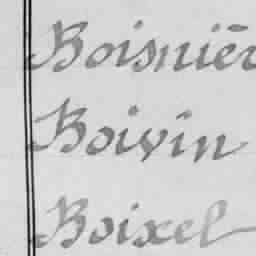 Boisnièr
Boivin
Boixel